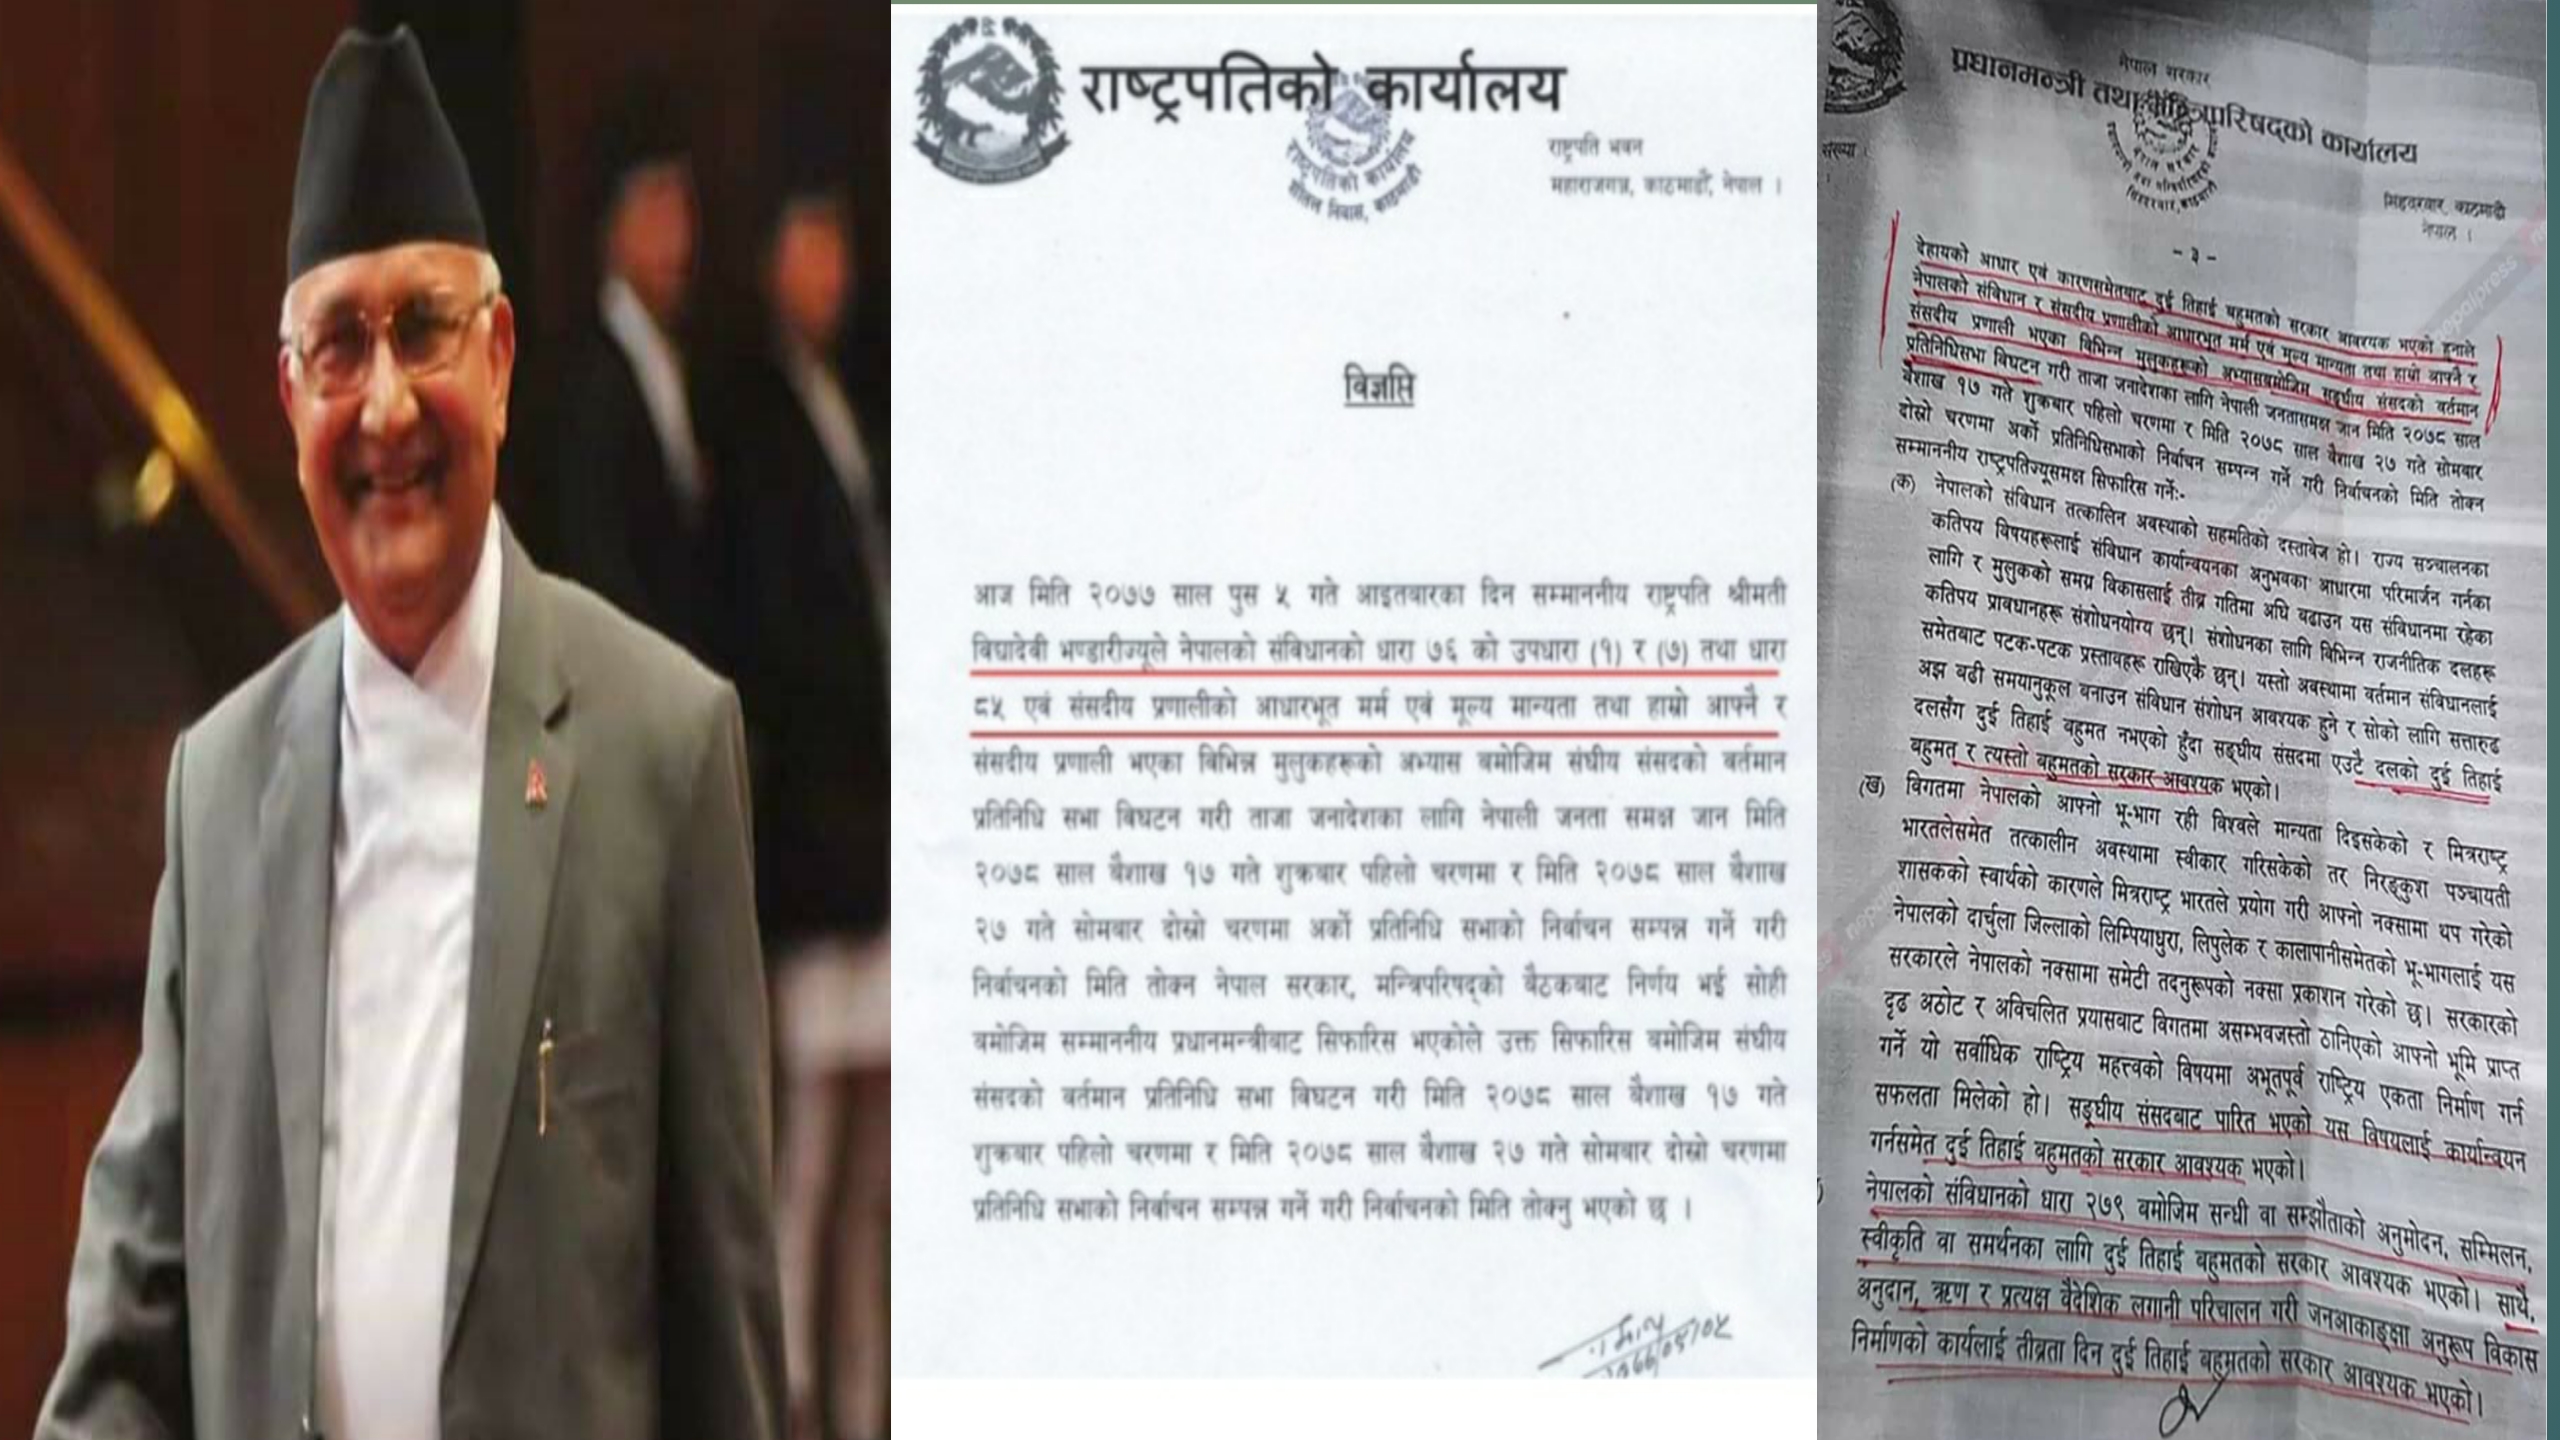 राष्ट्रपतिको कार्यालय
राष्ट्रपतिको कार्यालय
शीतल निवास, काठमाडौं
राष्ट्रपति भवन
महाराजगञ्ज, काठमाडौं, नेपाल ।
विज्ञप्ति
आज मिति २०७७ साल पुस ५ गते आइतबारका दिन सम्माननीय राष्ट्रपति श्रीमती
विद्यादेवी भण्डारीज्यूले नेपालको संविधानको धारा ७६ को उपधारा (१) र (७) तथा धारा
८५ एवं संसदीय प्रणालीको आधारभूत मर्म एवं मूल्य मान्यता तथा हाम्रो आफ्नै र
संसदीय प्रणाली भएका विभिन्न मुलुकहरूको अभ्यास बमोजिम संघीय संसदको वर्तमान
प्रतिनिधि सभा विघटन गरी ताजा जनादेशका लागि नेपाली जनता समक्ष जान मिति
२०७८ साल बैशाख १७ गते शुक्रबार पहिलो चरणमा र मिति २०७८ साल बैशाख
२७ गते सोमबार दोस्रो चरणमा अर्को प्रतिनिधि सभाको निर्वाचन सम्पन्न गर्ने गरी
निर्वाचनको मिति तोक्न नेपाल सरकार, मन्त्रिपरिषद्को बैठकबाट निर्णय भई सोही
बमोजिम सम्माननीय प्रधानमन्त्रीबाट सिफारिस भएकोले उक्त सिफारिस बमोजिम संघीय
संसदको वर्तमान प्रतिनिधि सभा विघटन गरी मिति २०७८ साल बैशाख १७ गते
शुक्रबार पहिलो चरणमा र मिति २०७८ साल बैशाख २७ गते सोमबार दोस्रो चरणमा
प्रतिनिधि सभाको निर्वाचन सम्पन्न गर्ने गरी निर्वाचनको मिति तोक्नु भएको छ ।
नेपाल सरकार
प्रधानमन्त्री तथा मन्त्रिपरिषद्को कार्यालय
संख्या :
सिंहदरबार, काठमाडौं
नेपाल ।
- ३ -
देहायको आधार एवं कारणसमेतबाट दुई तिहाई बहुमतको सरकार आवश्यक भएको हुनाले
नेपालको संविधान र संसदीय प्रणालीको आधारभूत मर्म एवं मूल्य मान्यता तथा हाम्रो आफ्नै र
संसदीय प्रणाली भएका विभिन्न मुलुकहरूको अभ्यासबमोजिम सङ्घीय संसदको वर्तमान
प्रतिनिधिसभा विघटन गरी ताजा जनादेशका लागि नेपाली जनतासमक्ष जान मिति २०७८ साल
बैशाख १७ गते शुक्रबार पहिलो चरणमा र मिति २०७८ साल बैशाख २७ गते सोमबार
दोस्रो चरणमा अर्को प्रतिनिधिसभाको निर्वाचन सम्पन्न गर्ने गरी निर्वाचनको मिति तोक्न
सम्माननीय राष्ट्रपतिज्यूसमक्ष सिफारिस गर्ने:-
(क) नेपालको संविधान तत्कालिन अवस्थाको सहमतिको दस्तावेज हो। राज्य सञ्चालनका
कतिपय विषयहरूलाई संविधान कार्यान्वयनका अनुभवका आधारमा परिमार्जन गर्नका
लागि र मुलुकको समग्र विकासलाई तीव्र गतिमा अघि बढाउन यस संविधानमा रहेका
कतिपय प्रावधानहरू संशोधनयोग्य छन्। संशोधनका लागि विभिन्न राजनीतिक दलहरू
समेतबाट पटक-पटक प्रस्तावहरू राखिएकै छन्। यस्तो अवस्थामा वर्तमान संविधानलाई
अझ बढी समयानुकूल बनाउन संविधान संशोधन आवश्यक हुने र सोको लागि सत्तारुढ
दलसँग दुई तिहाई बहुमत नभएको हुँदा सङ्घीय संसदमा एउटै दलको दुई तिहाई
बहुमत र त्यस्तो बहुमतको सरकार आवश्यक भएको।
(ख) विगतमा नेपालको आफ्नो भू-भाग रही विश्वले मान्यता दिइसकेको र मित्रराष्ट्र
भारतलेसमेत तत्कालीन अवस्थामा स्वीकार गरिसकेको तर निरङ्कुश पञ्चायती
शासकको स्वार्थको कारणले मित्रराष्ट्र भारतले प्रयोग गरी आफ्नो नक्सामा थप गरेको
नेपालको दार्चुला जिल्लाको लिम्पियाधुरा, लिपुलेक र कालापानीसमेतको भू-भागलाई यस
सरकारले नेपालको नक्सामा समेटी तदनुरूपको नक्सा प्रकाशन गरेको छ। सरकारको
दृढ अठोट र अविचलित प्रयासबाट विगतमा असम्भवजस्तो ठानिएको आफ्नो भूमि प्राप्त
गर्ने यो सर्वाधिक राष्ट्रिय महत्त्वको विषयमा अभूतपूर्व राष्ट्रिय एकता निर्माण गर्न
सफलता मिलेको हो। सङ्घीय संसदबाट पारित भएको यस विषयलाई कार्यान्वयन
गर्नसमेत दुई तिहाई बहुमतको सरकार आवश्यक भएको।
नेपालको संविधानको धारा २७९ बमोजिम सन्धी वा सम्झौताको अनुमोदन, सम्मिलन,
स्वीकृति वा समर्थनका लागि दुई तिहाई बहुमतको सरकार आवश्यक भएको। साथै,
अनुदान, ऋण र प्रत्यक्ष वैदेशिक लगानी परिचालन गरी जनआकाङ्क्षा अनुरूप विकास
निर्माणको कार्यलाई तीव्रता दिन दुई तिहाई बहुमतको सरकार आवश्यक भएको।
nepalpress